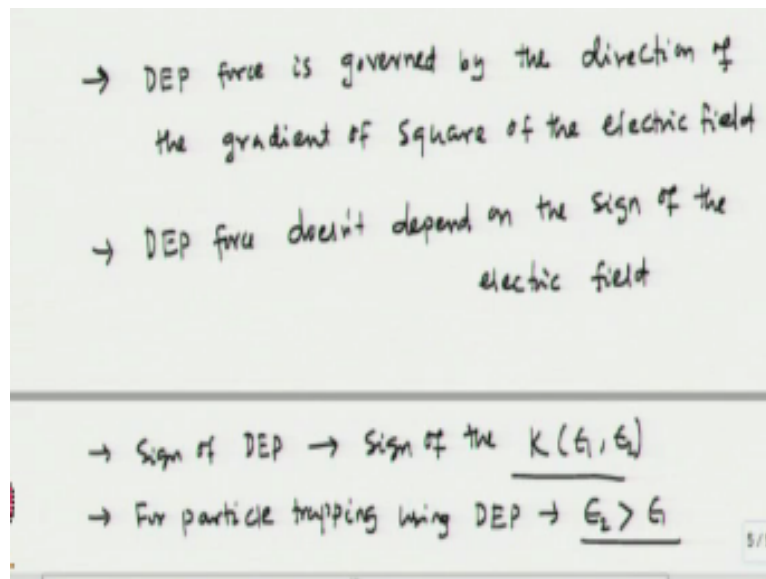 → DEP force is governed by the direction of
the gradient of square of the electric field
→ DEP force doesn't depend on the sign of the
electric field
→ Sign of DEP → Sign of the K(ϵ₁, ϵ₂)
→ For particle trapping using DEP → ϵ₂ > ϵ₁